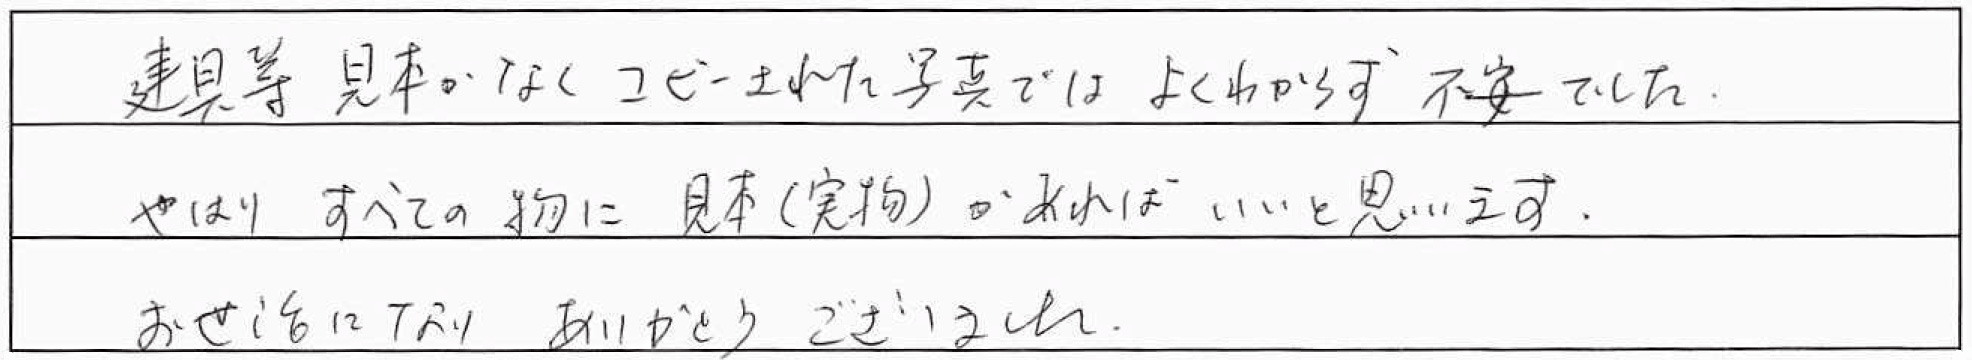 建具等 見本がなく コピーされた写真では よくわからず 不安でした.
やはり すべての物に 見本(実物)があれば いいと思います.
お世話になり ありがとうございました.